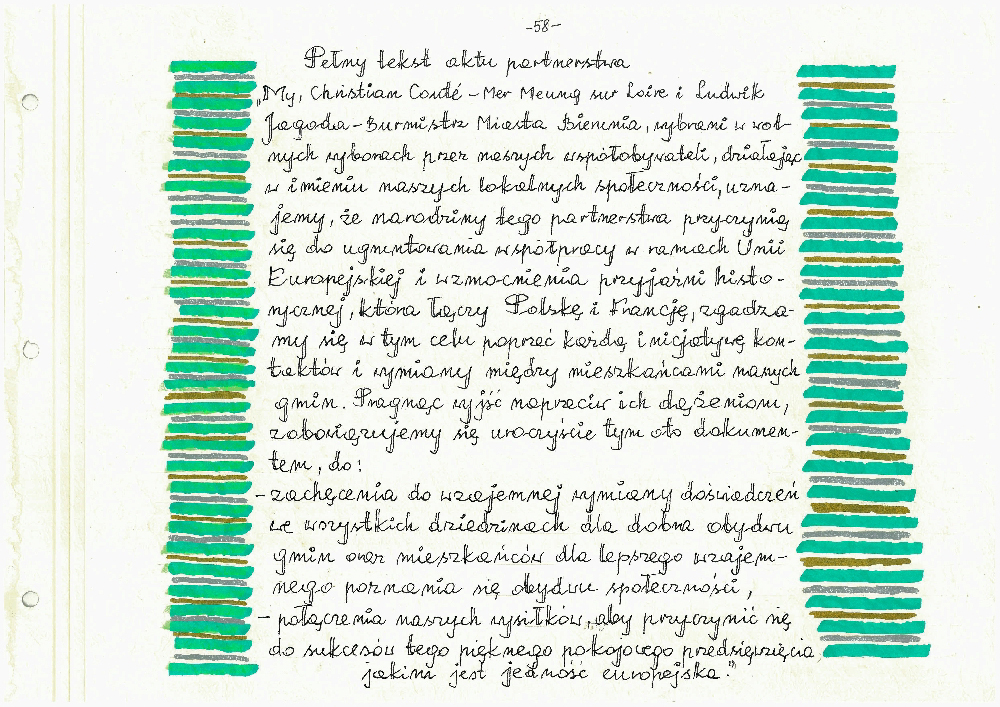 -58-
Pełny tekst aktu partnerstwa
„My, Christian Coudé - Mer Meung sur Loire i Ludwik
Jagoda - Burmistrz Miasta Bierunia, wybrani w wol-
nych wyborach przez naszych współobywateli, działając
w imieniu naszych lokalnych społeczności, uzna-
jemy, że narodziny tego partnerstwa przyczynią
się do ugruntowania współpracy w ramach Unii
Europejskiej i wzmocnienia przyjaźni histo-
rycznej, która łączy Polskę i Francję, zgadza-
my się w tym celu poprzeć każdą inicjatywę kon-
taktów i wymiany między mieszkańcami naszych
gmin. Pragnąc wyjść naprzeciw ich dążeniom,
zobowiązujemy się uroczyście tym oto dokumen-
tem, do:
- zachęcenia do wzajemnej wymiany doświadczeń
we wszystkich dziedzinach dla dobra obydwu
gmin oraz mieszkańców dla lepszego wzajem-
nego poznania się obydwu społeczności,
- połączenia naszych wysiłków, aby przyczynić się
do sukcesów tego pięknego pokojowego przedsięwzięcia
jakim jest jedność europejska."